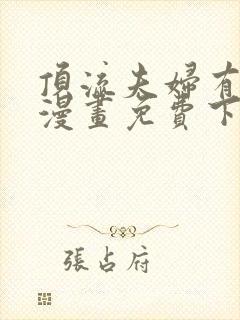 頂流夫婦有
漫畫免費下
張占府